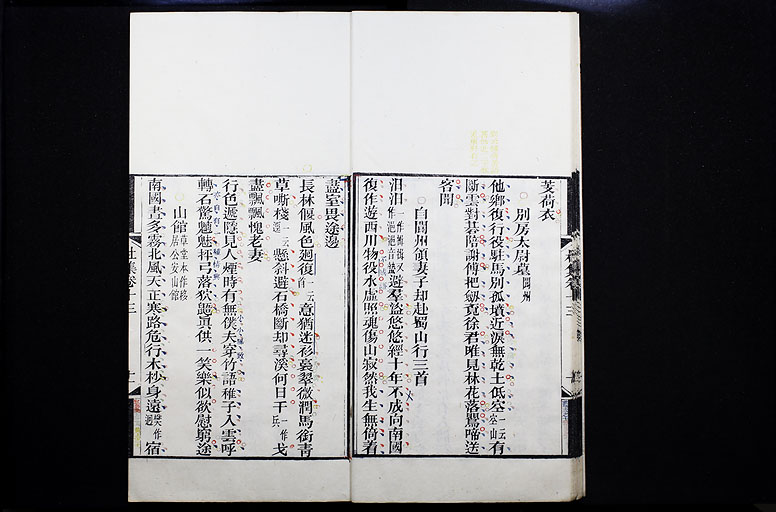 芰荷衣
別房太尉墓 閬州
他鄉復行役駐馬別孤墳近淚無乾土低空 一云空山 有
斷雲對碁陪謝傅把劒覓徐君唯見林花落鶯啼送
客聞
自閬州領妻子却赴蜀山行三首
汩汩 避羣盜悠悠經十年不成向南國
復作遊西川物役水虛照魂傷山寂然我生無倚著
盡室畏途邊
長林偃風色廻復 一云首 意猶迷衫裛翠微潤馬銜青
草嘶棧 一云逕 懸斜避石橋斷却尋溪何日干 一作兵 戈
盡飄飄愧老妻
行色遞隱見人煙時有無僕夫穿竹語稚子入雲呼
轉石驚魑魅抨弓落狖鼯真供一笑樂似欲慰窮途
山館 草堂本作移居公安山館
南國晝多霧北風天正寒路危行木杪身遠 樊作迥 宿
杜集卷十三